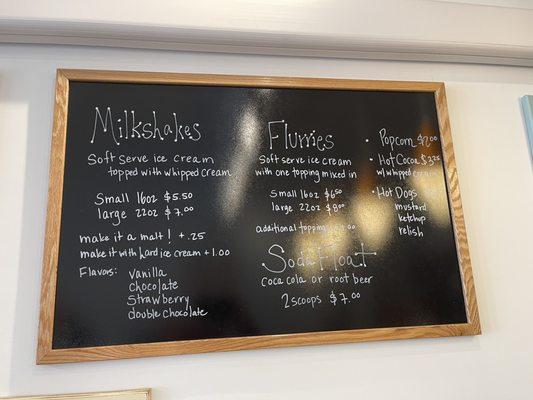 Milkshakes
Soft serve ice cream
topped with whipped cream
Small 16oz $5.50
large 22oz $7.00
make it a malt! + .25
make it with hard ice cream + 1.00
Flavors: vanilla
chocolate
Strawberry
double chocolate
Flurries
Soft serve ice cream
with one topping mixed in
Small 16oz $6.50
large 22oz $8.00
additional topping
Soda Float
Coca cola or root beer
2 scoops $7.00
• Popcorn
• Hot Cocoa $3.25
w/ whipped cream
• Hot Dogs
mustard
ketchup
relish